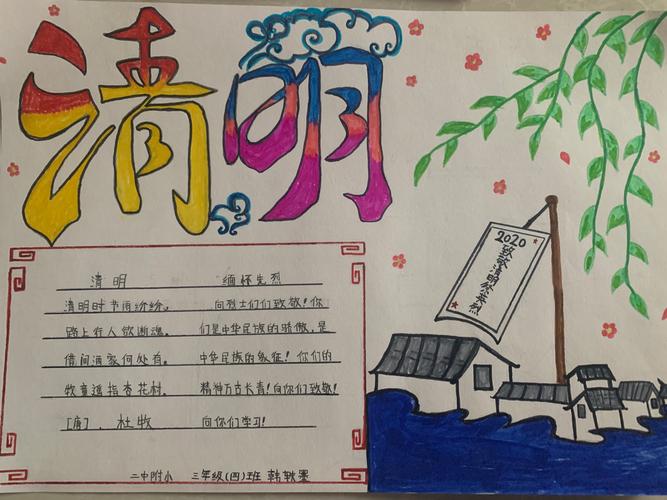 清明
清明 缅怀先烈
清明时节雨纷纷。 向烈士们们致敬!你
路上行人欲断魂。 们是中华民族的骄傲,是
借问酒家何处有。 中华民族的象征!你们的
牧童遥指杏花村。 精神万古长青!向你们致敬!
[唐]. 杜牧 向你们学习!
二中附小 三年级(四)班 韩
2020
致敬清明祭英烈